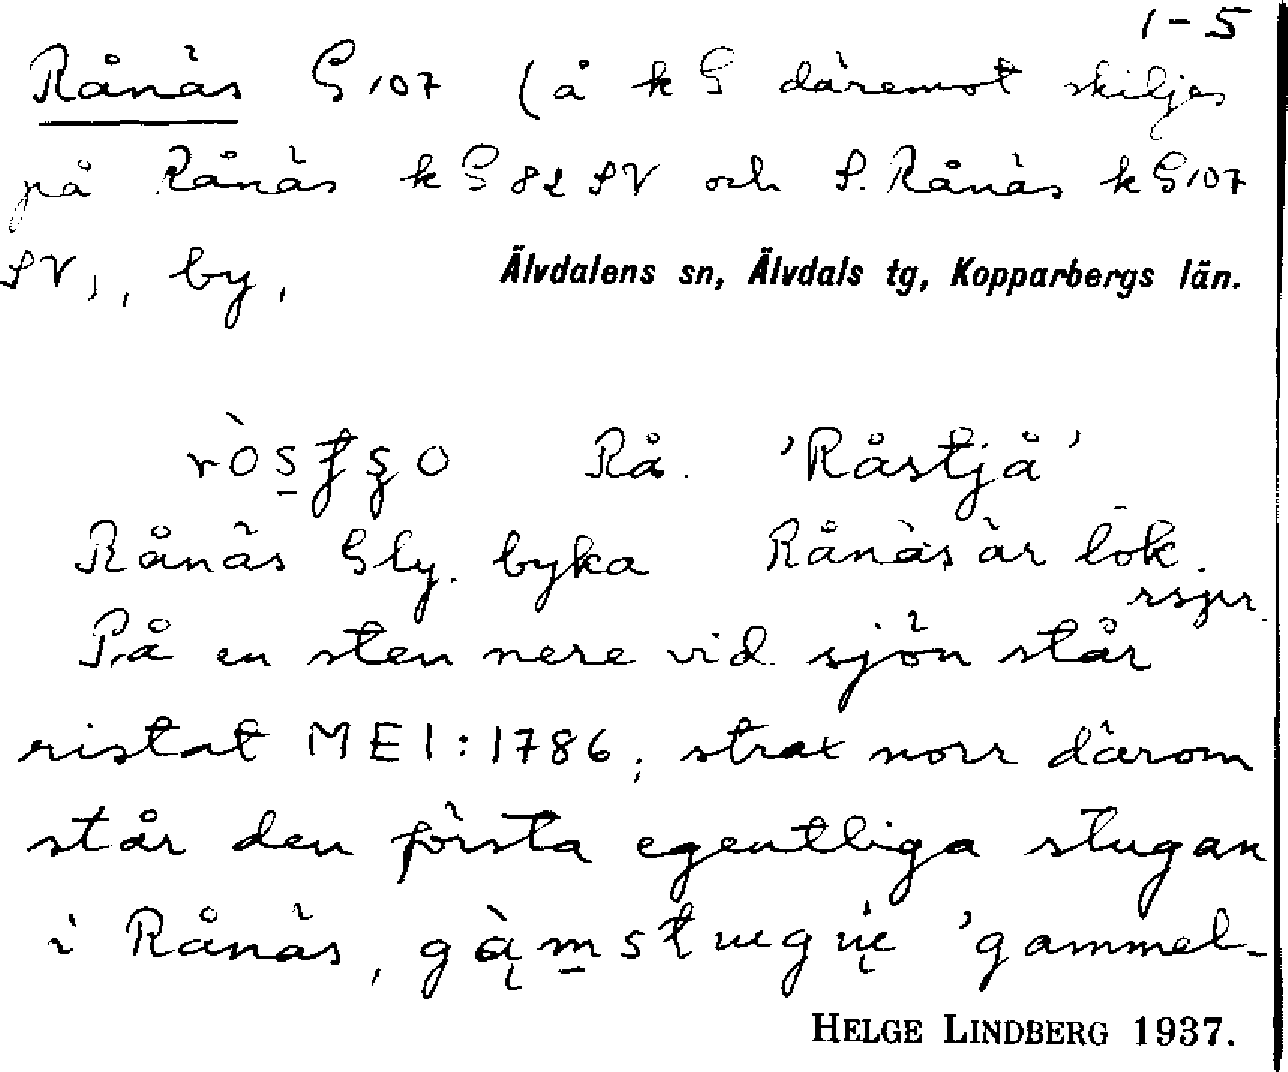 1-5
Rånäs G 107 (å k G däremot skiljes
på Rånäs k G 82 SV och S. Rånäs k G 107
SV), by, Älvdalens sn, Älvdals tg, Kopparbergs län.
Rå. 'Råstjå'
Rånäs Gly. byka Rånäs är lok.
På en sten nere vid sjön står
ristat MEI:1786, strax norr därom
står den första egentliga stugan
i Rånäs, 'gammel-
HELGE LINDBERG 1937.